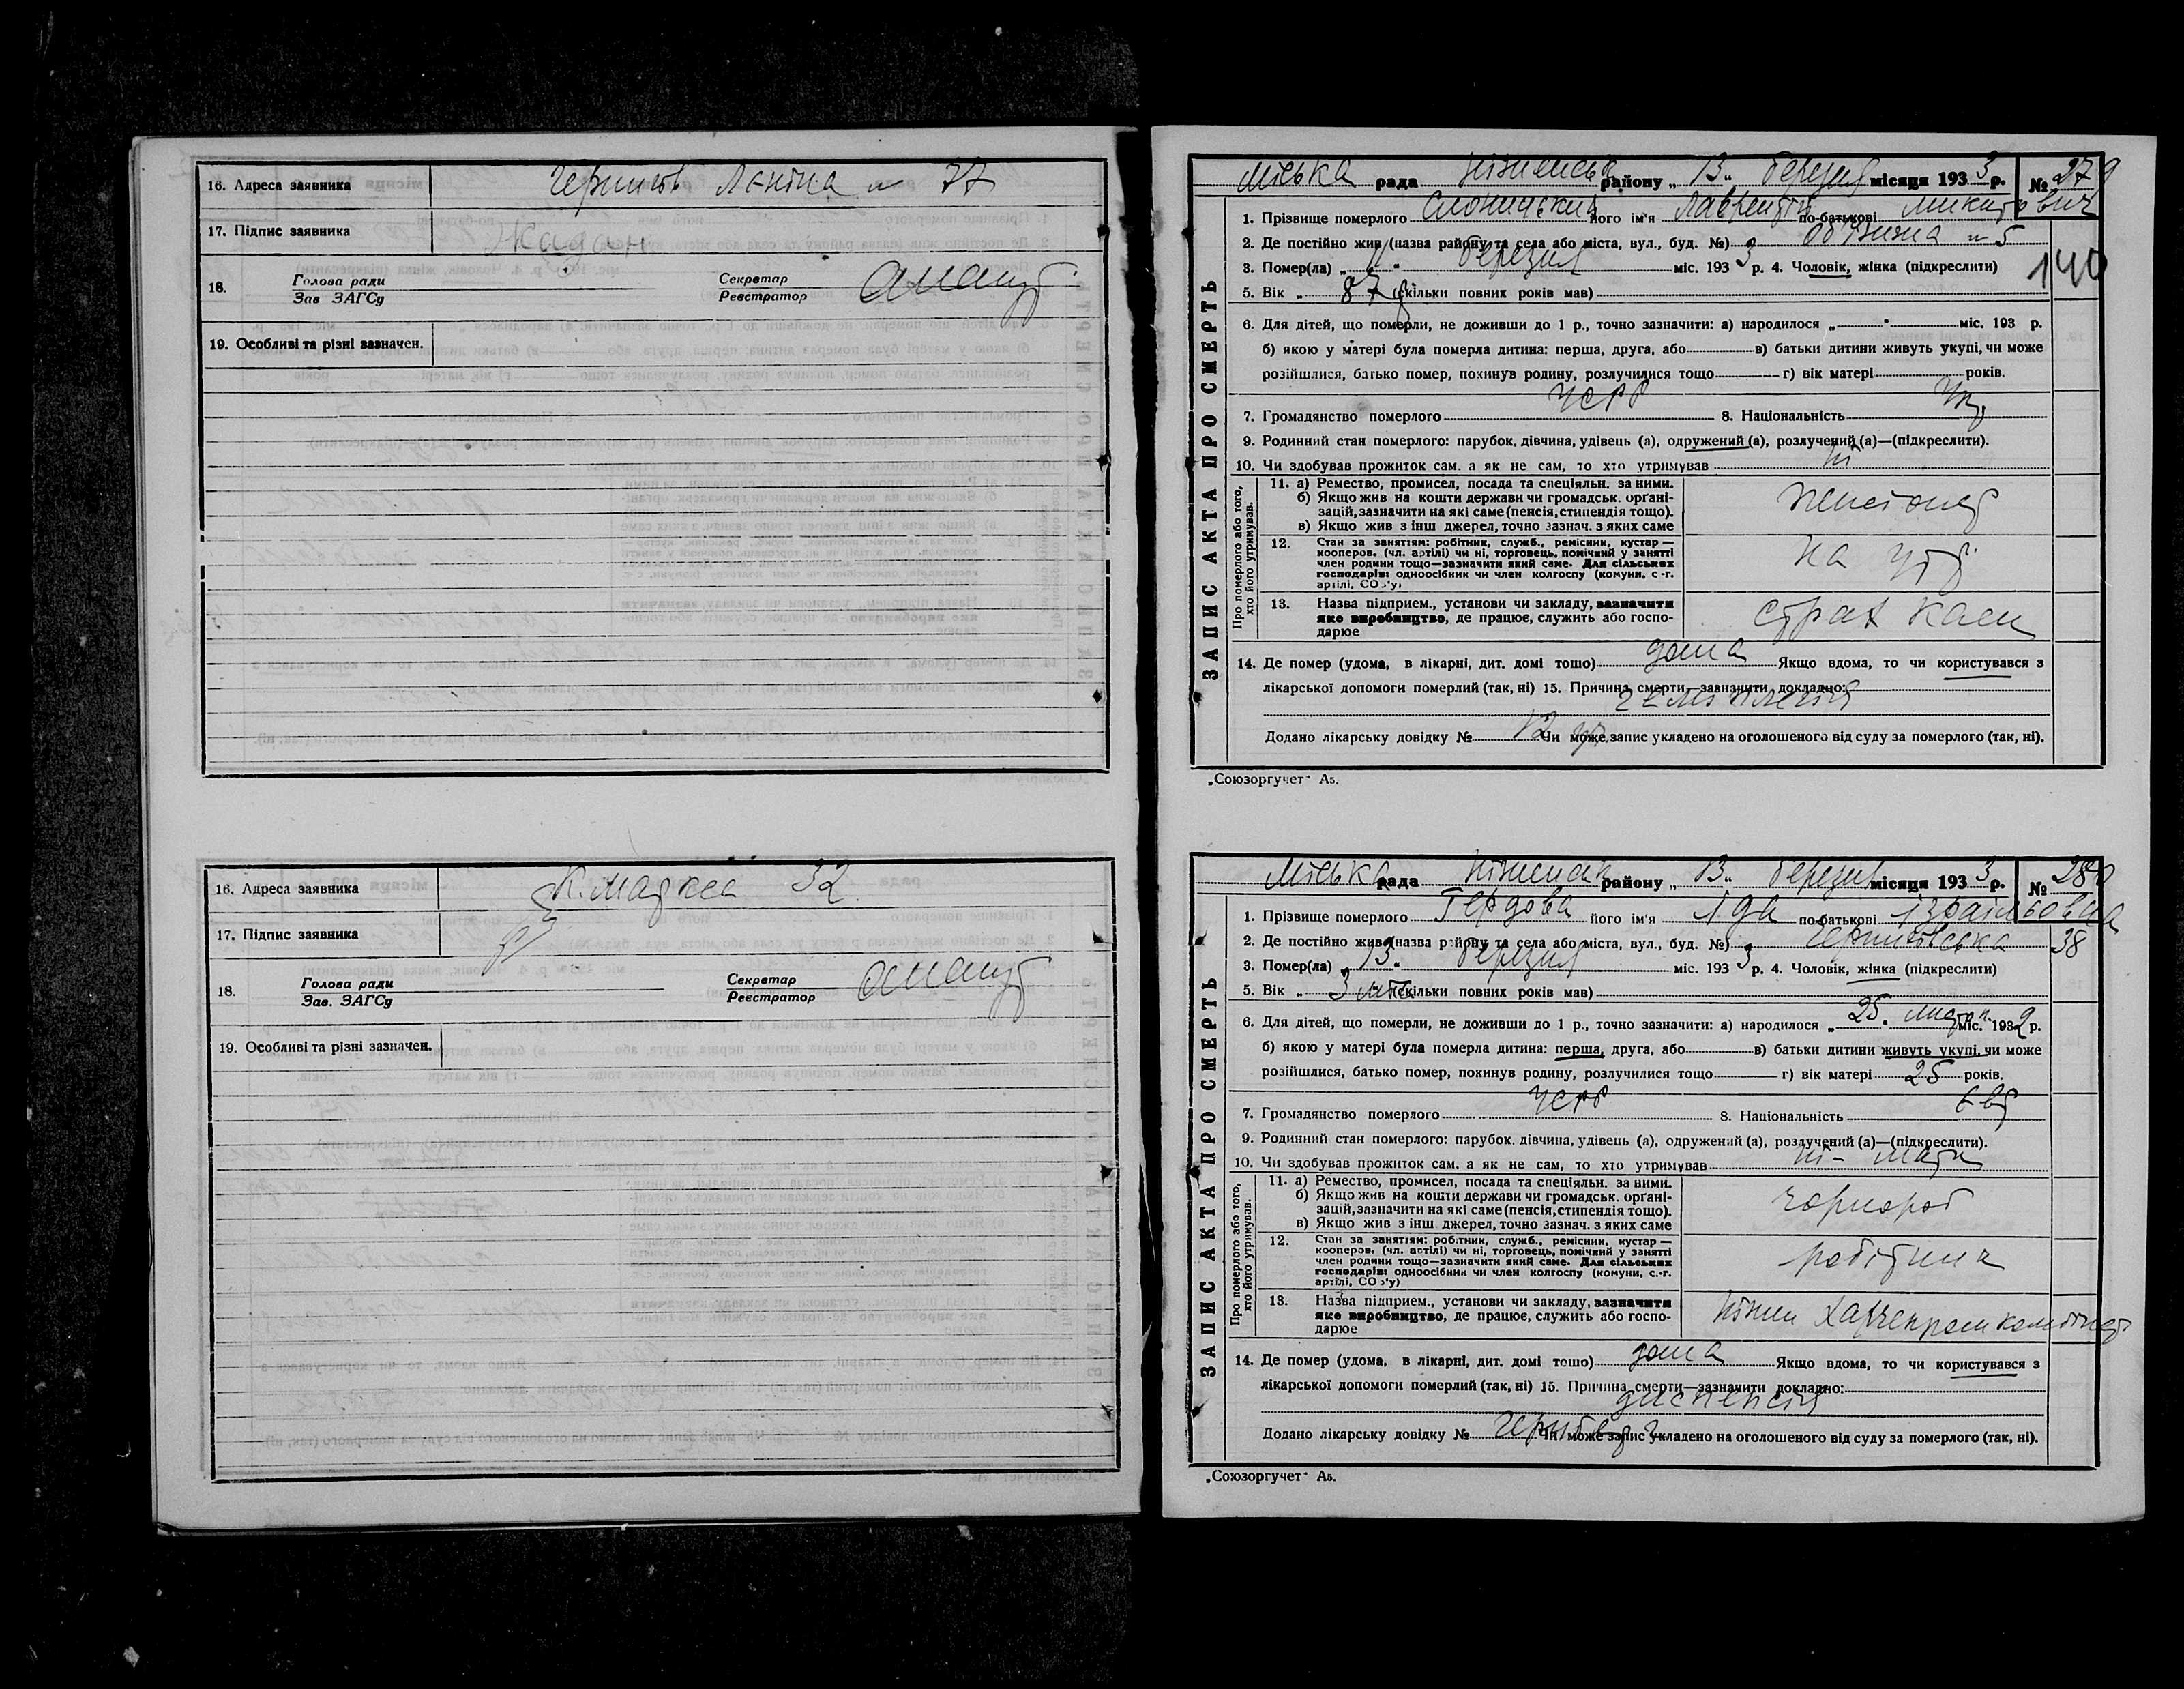 16. Адреса заявника Чернигів Леніна № 77
17. Підпис заявника Жадан
18. Голова ради Секретар
Зав ЗАГСу Реєстратор
19. Особливі та різні зазначен.
16. Адреса заявника К. Маркса 32
17. Підпис заявника
18. Голова ради Секретар
Зав. ЗАГСу Реєстратор
19. Особливі та різні зазначен.
ЗАПИС АКТА ПРО СМЕРТЬ
Міська рада Ніженськ району „13" березня місяця 1933 р. № 279
1. Прізвище померлого Слоницький його ім'я Лаврентій по-батькові Микитович
2. Де постійно жив (назва району та села або міста, вул., буд. №) Об'їзжа № 5
3. Помер(ла) „11" березня міс. 1933 р. 4. Чоловік, жінка (підкреслити) 140
5. Вік „ 87 р (скільки повних років мав)
6. Для дітей, що померли, не доживши до 1 р., точно зазначити: а) народилося „ " міс. 193 р.
б) якою у матері була померла дитина: перша, друга, або в) батьки дитини живуть укупі, чи може
розійшлися, батько помер, покинув родину, розлучилися тощо г) вік матері років.
7. Громадянство померлого УСРР 8. Національність Укр
9. Родинний стан померлого: парубок, дівчина, удівець (а), одружений (а), розлучений (а)—(підкреслити).
10. Чи здобував прожиток сам, а як не сам, то хто утримував ні
Про померлого або того,
хто його утримував.
11. а) Ремество, промисел, посада та спеціяльн. за ними.
б) Якщо жив на кошти держави чи громадськ. орґані-
зацій, зазначити на які саме (пенсія, стипендія тощо).
в) Якщо жив з інш джерел, точно зазнач. з яких саме
пенсіонер
12. Стан за занятіям: робітник, служб., ремісник, кустар—
кооперов. (чл. артілі) чи ні, торговець, помічний у занятті
член родини тощо—зазначити який саме. Для сільських
господарів: одноосібник чи член колгоспу (комуни, с.-г.
артілі, СОЗ'у)
на утр
13. Назва підприєм., установи чи закладу, зазначити
яке виробництво, де працює, служить або госпо-
дарює
страх каси
14. Де помер (удома, в лікарні, дит. домі тощо) дома Якщо вдома, то чи користувався з
лікарської допомоги померлий (так, ні) 15. Причина смерти—зазначити докладно:
геміплегія
Додано лікарську довідку № 12 Чи може запис укладено на оголошеного від суду за померлого (так, ні).
„Союзоргучет" А5.
ЗАПИС АКТА ПРО СМЕРТЬ
Міська рада Ніженськ району „13" березня місяця 1933 р. № 280
1. Прізвище померлого Гердова його ім'я Іда по-батькові Ізраільовна
2. Де постійно жив (назва району та села або міста, вул., буд. №) Чернигівська 38
3. Помер(ла) „13" березня міс. 1933 р. 4. Чоловік, жінка (підкреслити)
5. Вік „ 3 міс (скільки повних років мав)
6. Для дітей, що померли, не доживши до 1 р., точно зазначити: а) народилося „25" листоп. міс. 1932 р.
б) якою у матері була померла дитина: перша, друга, або в) батьки дитини живуть укупі, чи може
розійшлися, батько помер, покинув родину, розлучилися тощо г) вік матері 25 років.
7. Громадянство померлого УСРР 8. Національність євр
9. Родинний стан померлого: парубок, дівчина, удівець (а), одружений (а), розлучений (а)—(підкреслити).
10. Чи здобував прожиток сам, а як не сам, то хто утримував ні - мати
Про померлого або того,
хто його утримував.
11. а) Ремество, промисел, посада та спеціяльн. за ними.
б) Якщо жив на кошти держави чи громадськ. орґані-
зацій, зазначити на які саме (пенсія, стипендія тощо).
в) Якщо жив з інш джерел, точно зазнач. з яких саме
чорнороб
12. Стан за занятіям: робітник, служб., ремісник, кустар—
кооперов. (чл. артілі) чи ні, торговець, помічний у занятті
член родини тощо—зазначити який саме. Для сільських
господарів: одноосібник чи член колгоспу (комуни, с.-г.
артілі, СОЗ'у)
робітниця
13. Назва підприєм., установи чи закладу, зазначити
яке виробництво, де працює, служить або госпо-
дарює
Ніжин Харчепромкомбінат
14. Де помер (удома, в лікарні, дит. домі тощо) дома Якщо вдома, то чи користувався з
лікарської допомоги померлий (так, ні) 15. Причина смерти—зазначити докладно:
диспепсія
Додано лікарську довідку № Чи може запис укладено на оголошеного від суду за померлого (так, ні).
„Союзоргучет" А5.